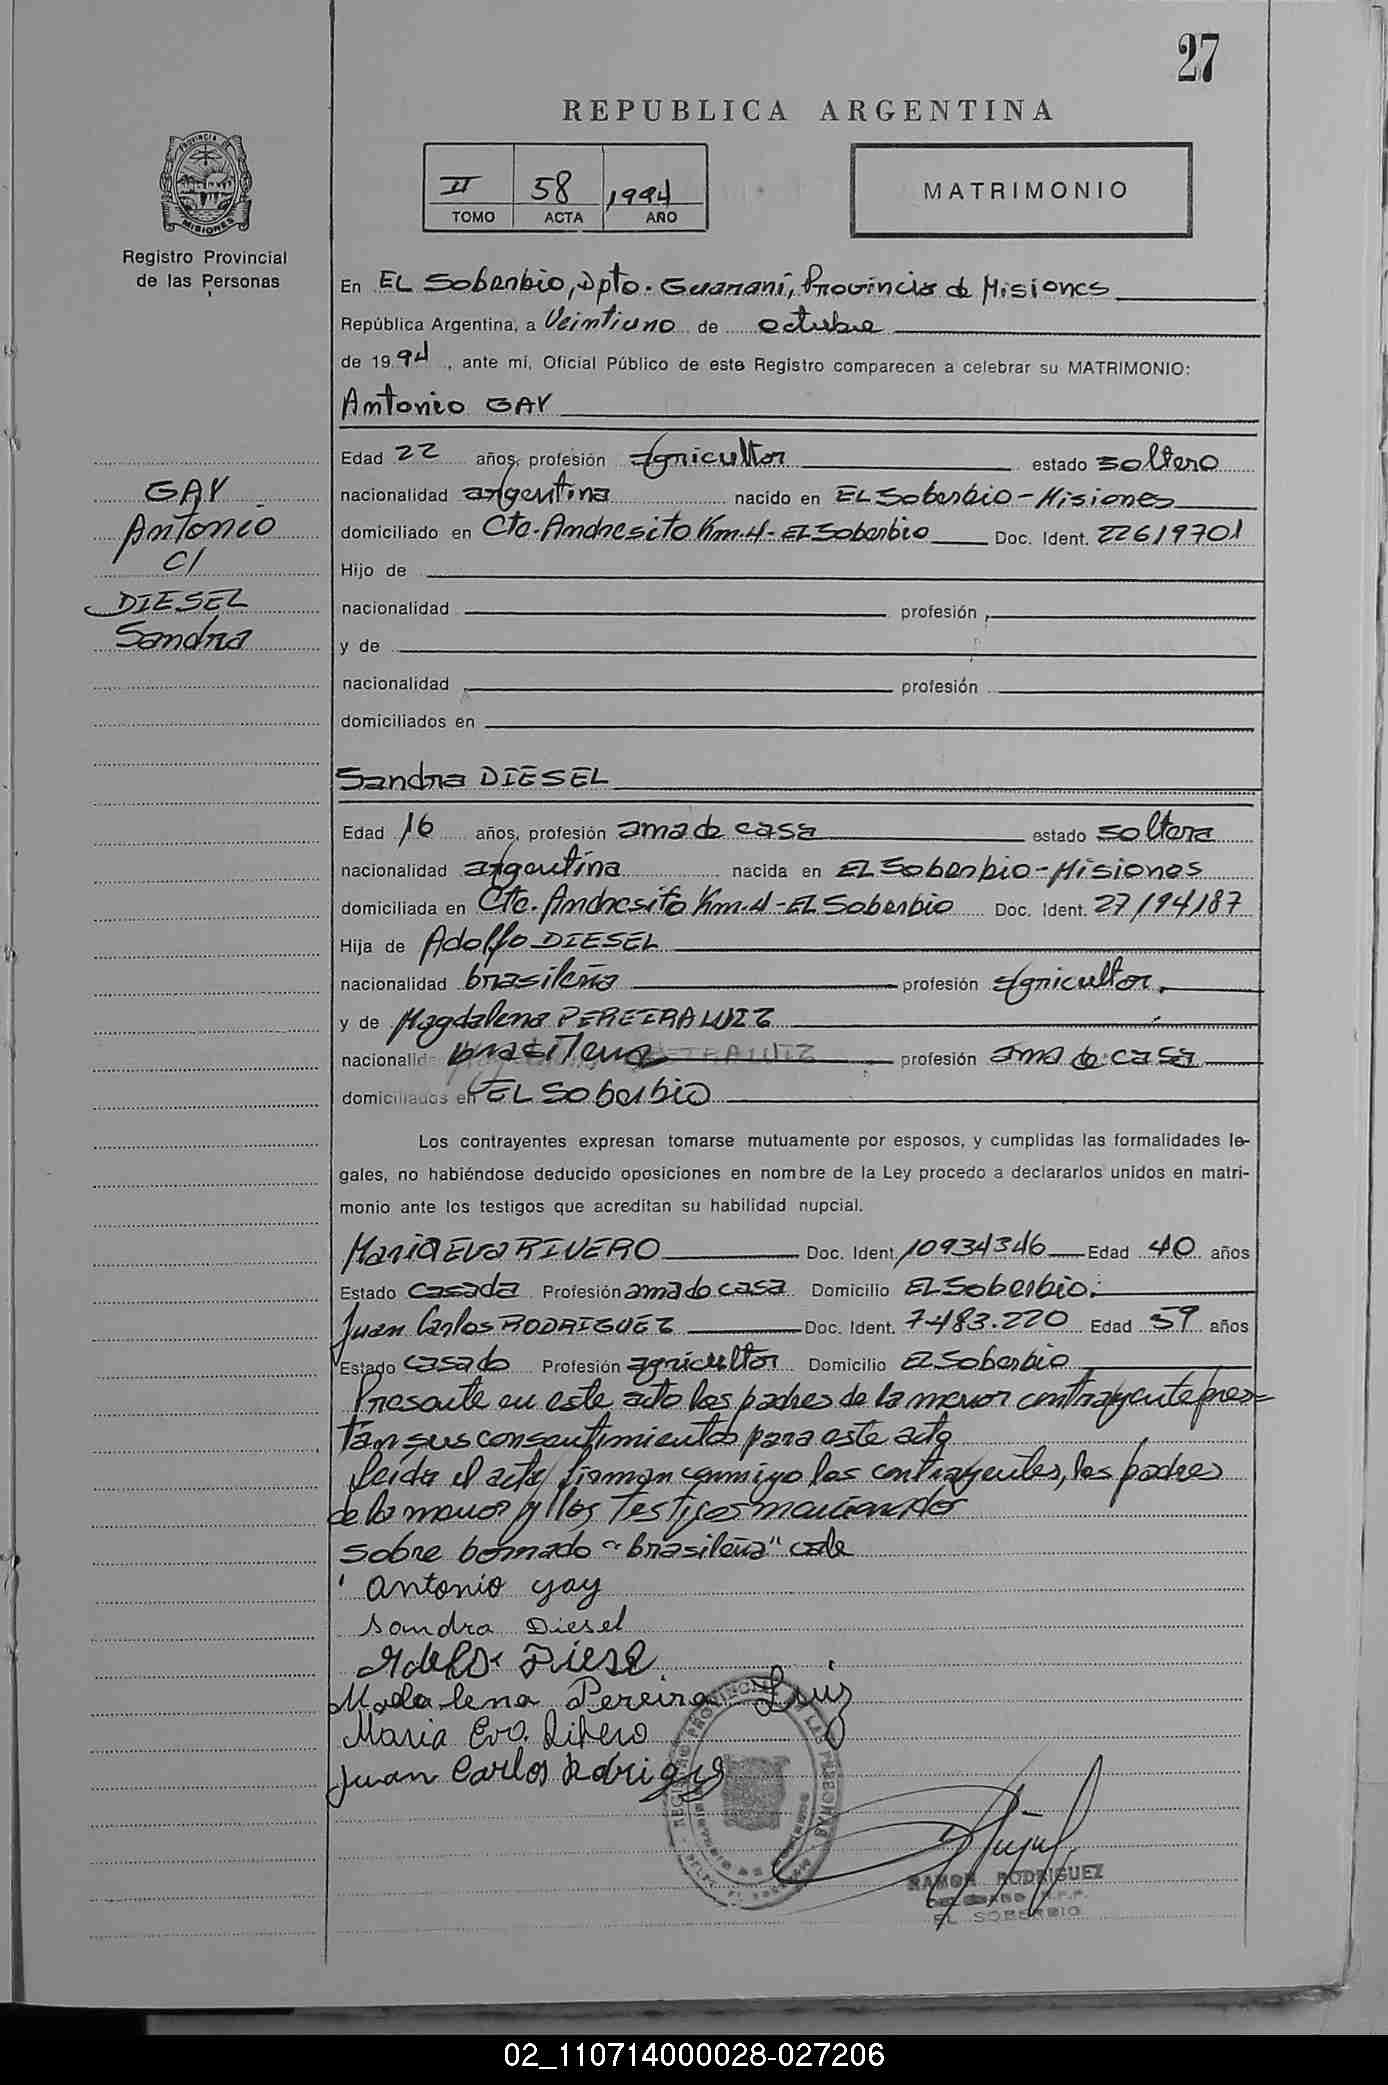 27
REPUBLICA ARGENTINA
II 58 1994
TOMO ACTA AÑO
MATRIMONIO
PROVINCIA DE
MISIONES
Registro Provincial
de las Personas
En EL Soberbio, Dpto. Guaraní, Provincia de Misiones
República Argentina, a Veintiuno de octubre
de 1994, ante mí, Oficial Público de este Registro comparecen a celebrar su MATRIMONIO:
Antonio GAY
Edad 22 años, profesión agricultor estado soltero
nacionalidad argentina nacido en EL Soberbio - Misiones
domiciliado en Cte. Andresito Km. 4 - EL Soberbio Doc. Ident. 22619701
Hijo de
nacionalidad profesión
y de
nacionalidad profesión
domiciliados en
GAY
Antonio
C/
DIESEL
Sandra
Sandra DIESEL
Edad 16 años, profesión ama de casa estado soltera
nacionalidad argentina nacida en EL Soberbio - Misiones
domiciliada en Cte. Andresito Km. 4 - EL Soberbio Doc. Ident. 27194187
Hija de Adolfo DIESEL
nacionalidad brasileña profesión agricultor
y de Magdalena PEREIRA LUIZ
nacionalid brasileña profesión ama de casa
domiciliados en EL Soberbio
Los contrayentes expresan tomarse mutuamente por esposos, y cumplidas las formalidades le-
gales, no habiéndose deducido oposiciones en nombre de la Ley procedo a declararlos unidos en matri-
monio ante los testigos que acreditan su habilidad nupcial.
Maria Eva RIVERO Doc. Ident. 10934346 Edad 40 años
Estado casada Profesión ama de casa Domicilio EL Soberbio.
Juan Carlos RODRIGUEZ Doc. Ident. 7.483.220 Edad 59 años
Estado casado Profesión agricultor Domicilio EL Soberbio
Presente en este acto los padres de la menor contrayente pres=
tan sus consentimientos para este acto
Leída el acta, firman conmigo los contrayentes, los padres
de la menor y los testigos mencionados
sobre borrado "brasileña" vale
Antonio gay
Sandra Diesel
Madalena Pereira Luiz
Maria Eva Ribero
Juan Carlos Rodrigues
RAMON RODRIGUEZ
EL SOBERBIO
02_110714000028-027206